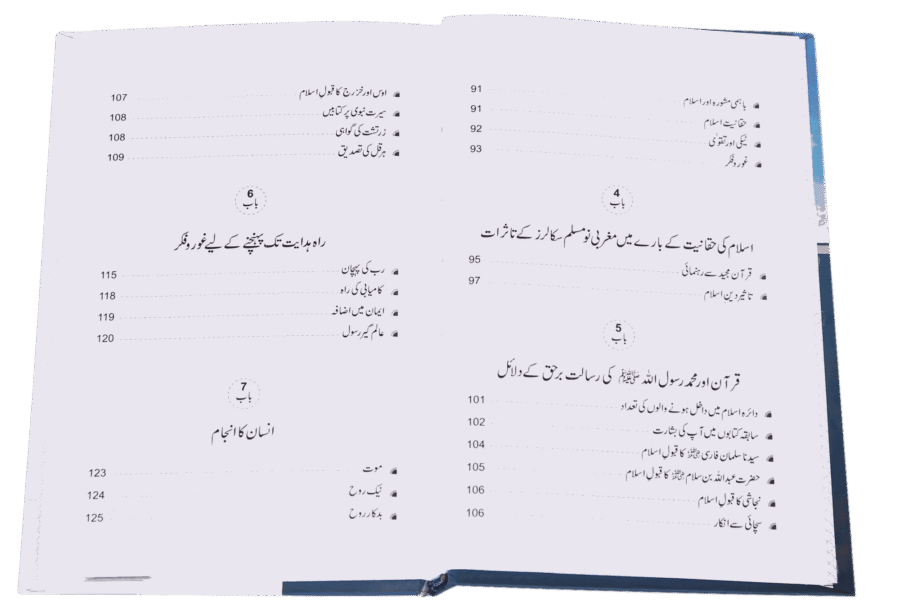 باہمی مشورہ اور اسلام 91
حقانیت اسلام 91
نیکی اور تقویٰ 92
غور و فکر 93
4
باب
اسلام کی حقانیت کے بارے میں مغربی نومسلم سکالرز کے تاثرات
قرآن مجید سے رہنمائی 95
تاثیر دین اسلام 97
5
باب
قرآن اور محمد رسول اللہ ﷺ کی رسالت برحق کے دلائل
دائرہ اسلام میں داخل ہونے والوں کی تعداد 101
سابقہ کتابوں میں آپ کی بشارت 102
سیدنا سلمان فارسی ﷺ کا قبول اسلام 104
حضرت عبداللہ بن سلام ﷺ کا قبول اسلام 105
نجاشی کا قبول اسلام 106
سچائی سے انکار 106
اوس اور خزرج کا قبول اسلام 107
سیرت نبوی پر کتابیں 108
زرتشت کی گواہی 108
ہرقل کی تصدیق 109
6
باب
راہ ہدایت تک پہنچنے کے لیے غور و فکر
رب کی پہچان 115
کامیابی کی راہ 118
ایمان میں اضافہ 119
عالم گیر رسول 120
7
باب
انسان کا انجام
موت 123
نیک روح 124
بدکار روح 125